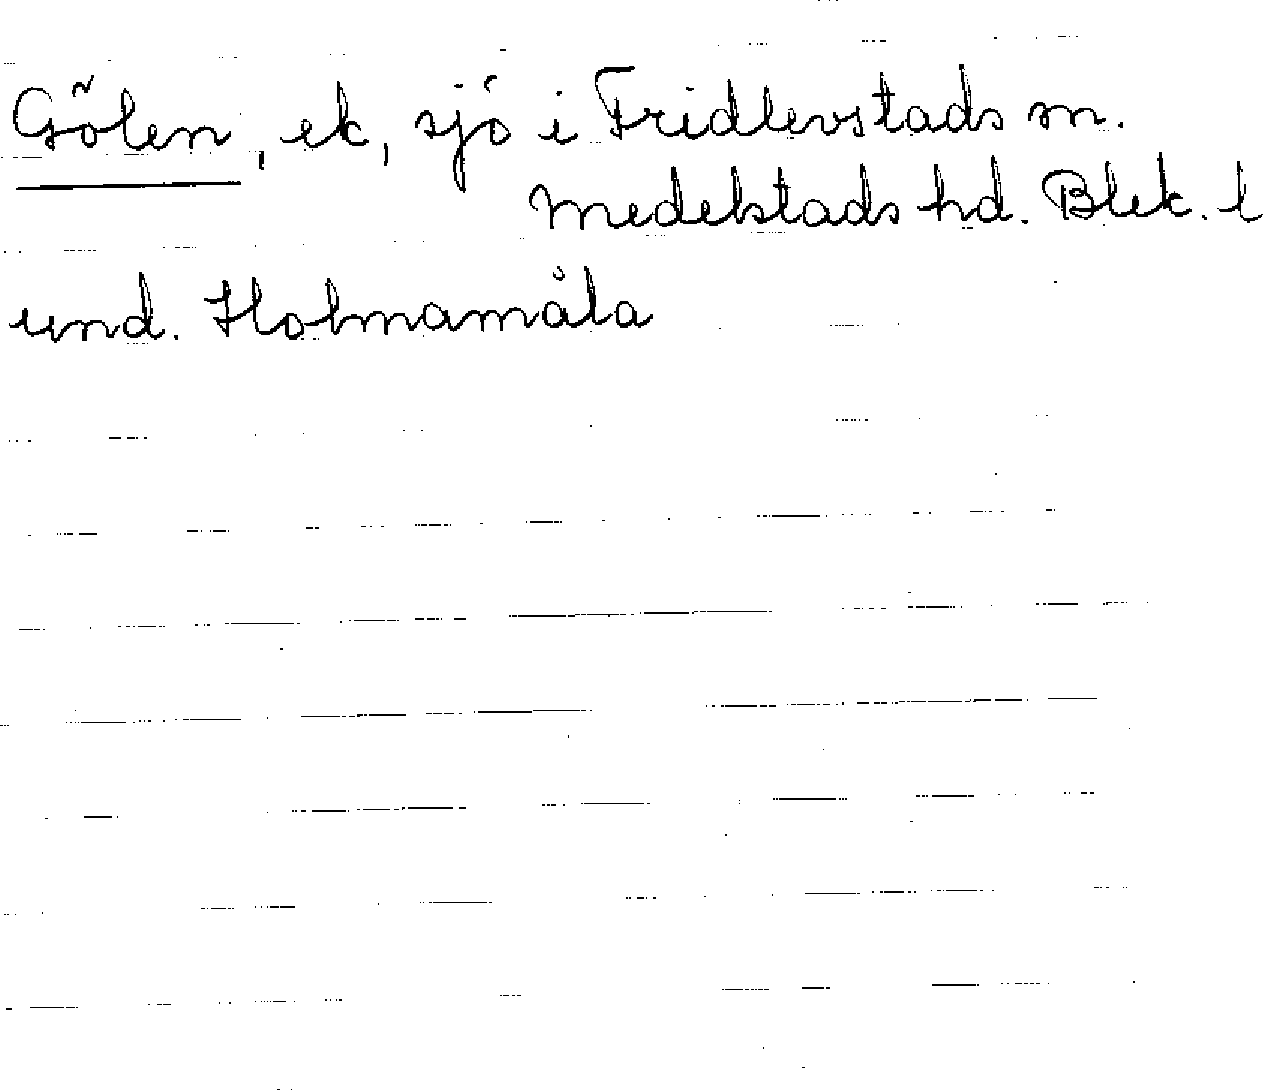 Gölen, ek, sjö i Fridlevstads sn.
Medelstads hd. Blek. l
und. Holmamåla